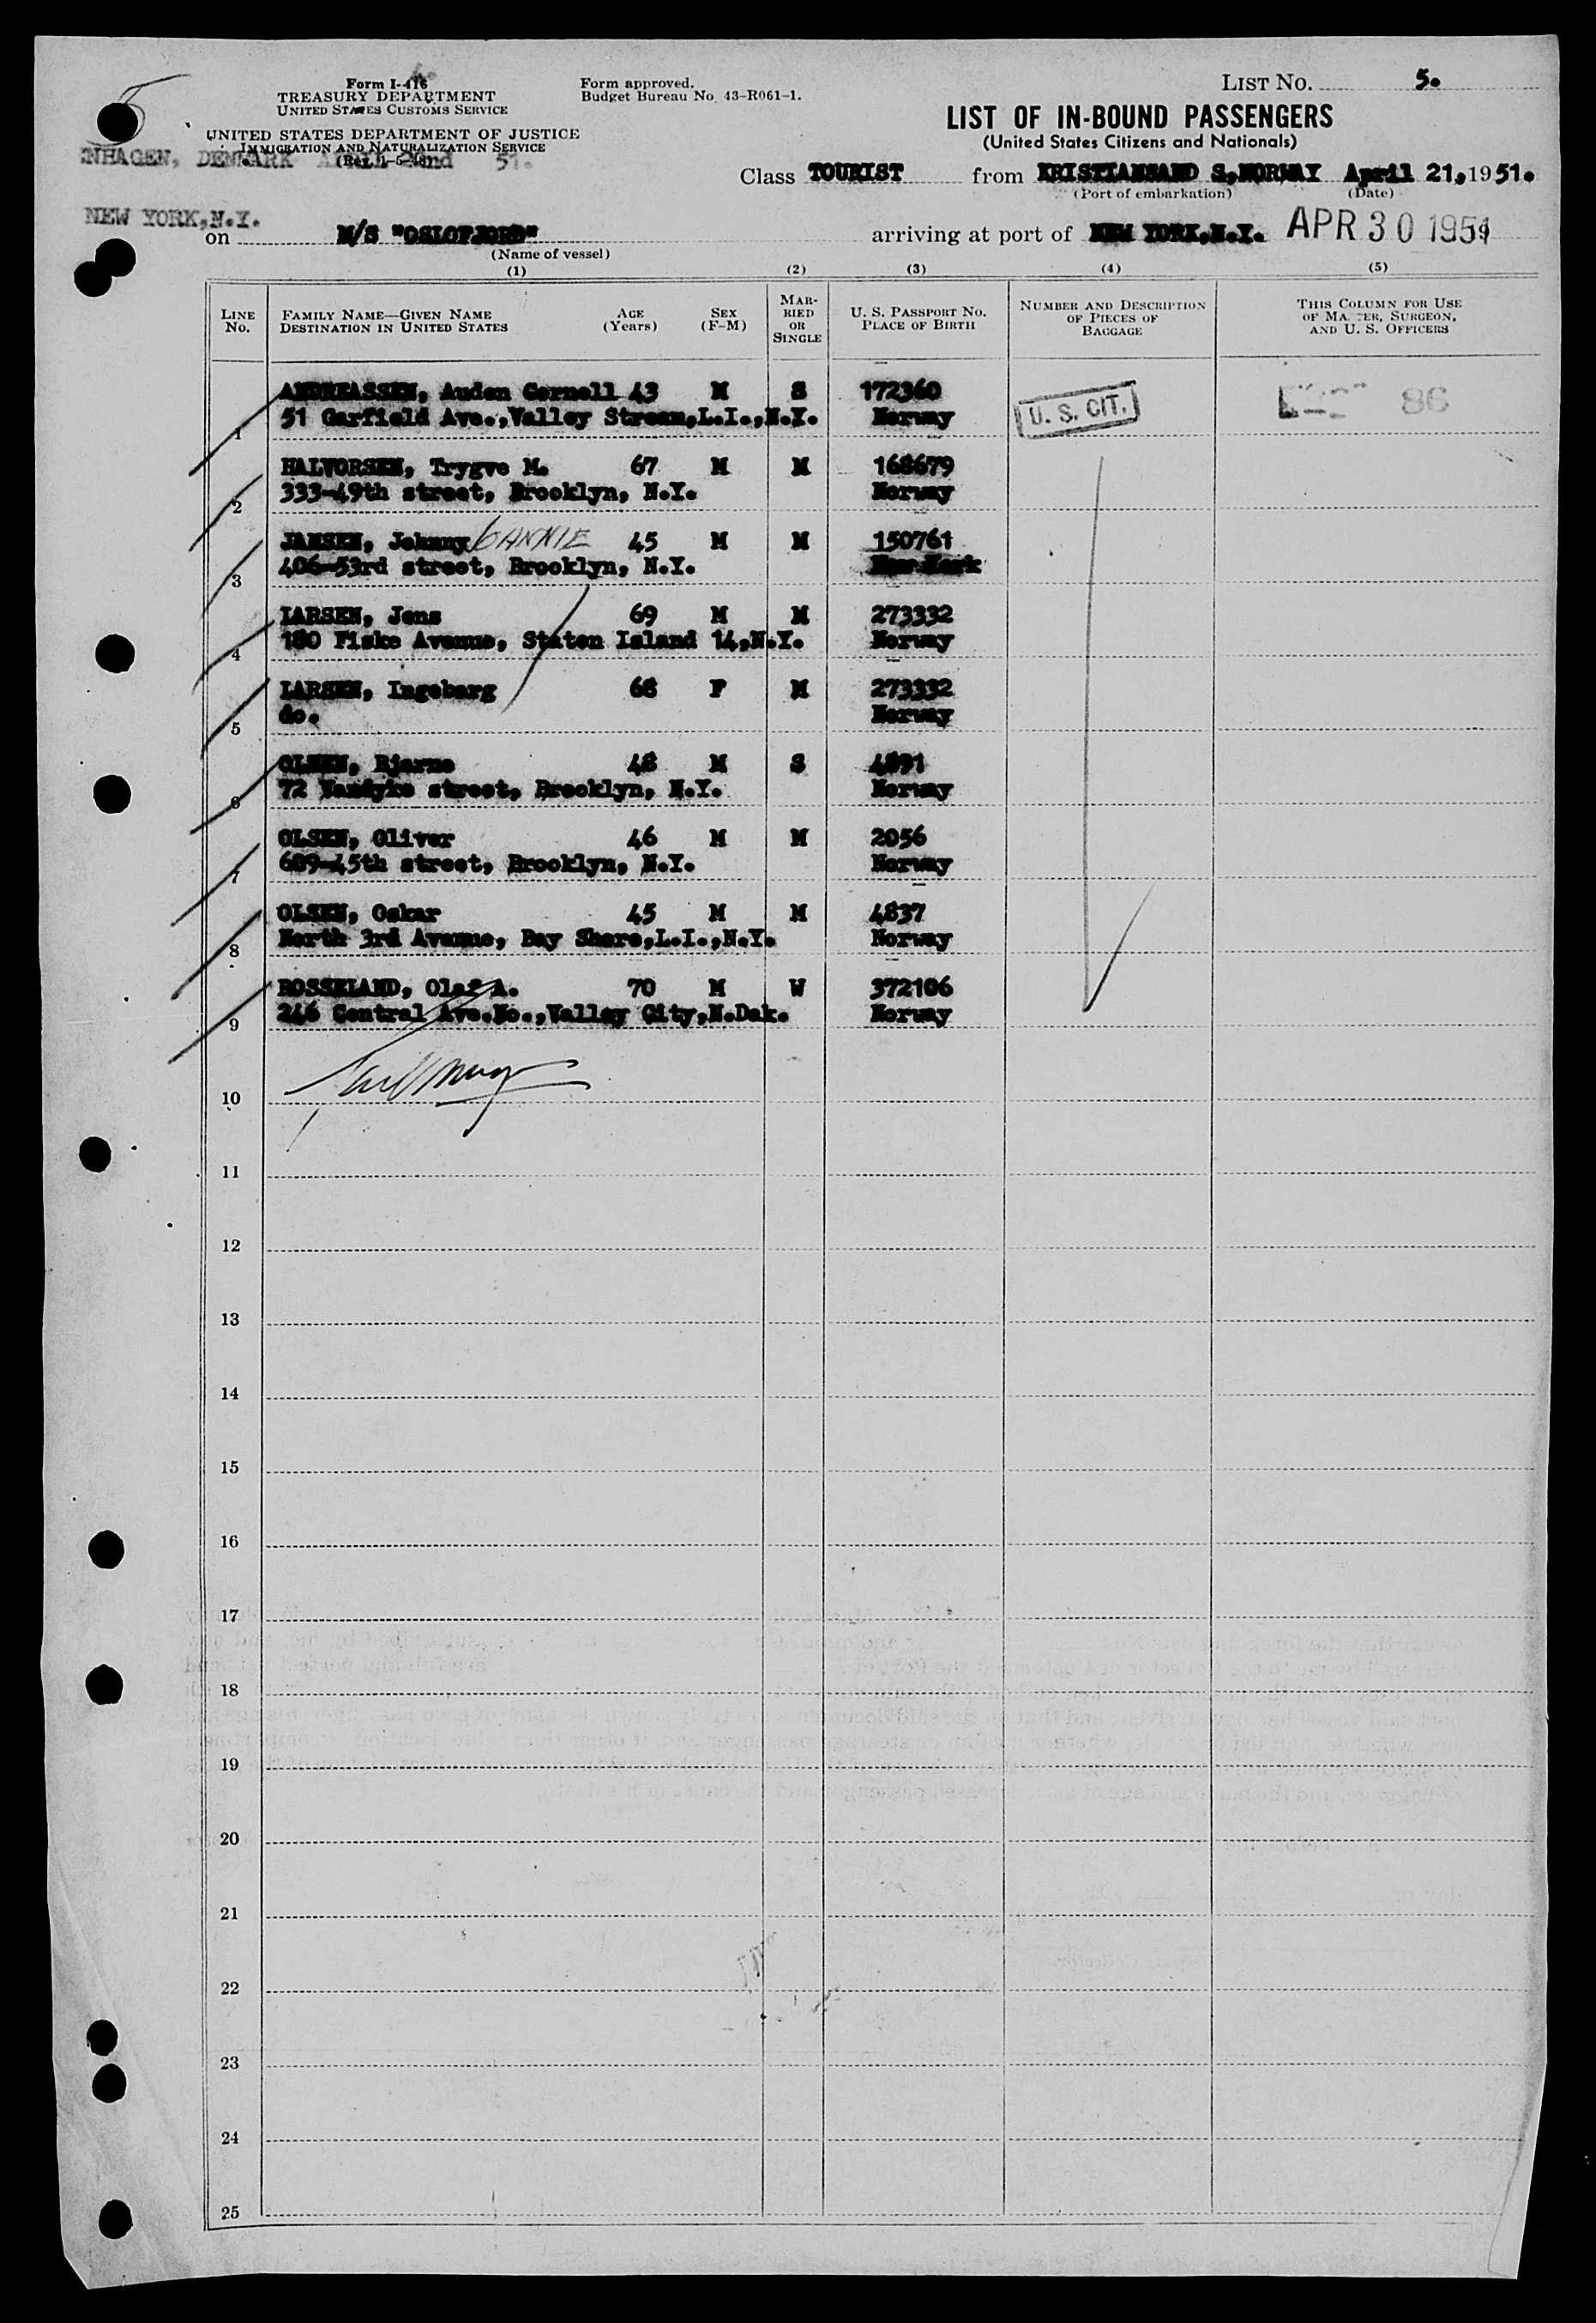 5
Form I-416
TREASURY DEPARTMENT
UNITED STATES CUSTOMS SERVICE
UNITED STATES DEPARTMENT OF JUSTICE
IMMIGRATION AND NATURALIZATION SERVICE
NHAGEN, DENMARK 51.
Form approved.
Budget Bureau No. 43-R061-1.
LIST No. 5.
LIST OF IN-BOUND PASSENGERS
(United States Citizens and Nationals)
Class TOURIST from KRISTIANSAND S, NORWAY April 21, 1951.
(Port of embarkation) (Date)
NEW YORK, N.Y.
on M/S "OSLOFJORD" arriving at port of NEW YORK, N.Y. APR 30 1951
(Name of vessel)
(1) (2) (3) (4) (5)
LINE No. FAMILY NAME—GIVEN NAME DESTINATION IN UNITED STATES AGE (Years) SEX (F-M) MARRIED OR SINGLE U. S. PASSPORT No. PLACE OF BIRTH NUMBER AND DESCRIPTION OF PIECES OF BAGGAGE THIS COLUMN FOR USE OF MASTER, SURGEON, AND U. S. OFFICERS
ANDREASSEN, Auden Cornell 43 M S 172360
1 51 Garfield Ave., Valley Stream, L.I., N.Y. Norway U. S. CIT. 86
HALVORSEN, Trygve M. 67 M M 168679
2 333-49th street, Brooklyn, N.Y. Norway
JANSEN, Johnny 45 M M 150761
3 406-53rd street, Brooklyn, N.Y.
LARSEN, Jens 69 M M 273332
4 180 Fiske Avenue, Staten Island 14, N.Y. Norway
LARSEN, Ingeborg 68 F M 273332
5 do. Norway
OLSEN, Bjarne 48 M S 4891
6 72 Vandyke street, Brooklyn, N.Y. Norway
OLSEN, Oliver 46 M M 2056
7 689-45th street, Brooklyn, N.Y. Norway
OLSEN, Oskar 45 M M 4837
8 North 3rd Avenue, Bay Shore, L.I., N.Y. Norway
ROSSELAND, Olaf A. 70 M W 372106
9 246 Central Ave. No., Valley City, N.Dak. Norway
10
11
12
13
14
15
16
17
18
19
20
21
22
23
24
25